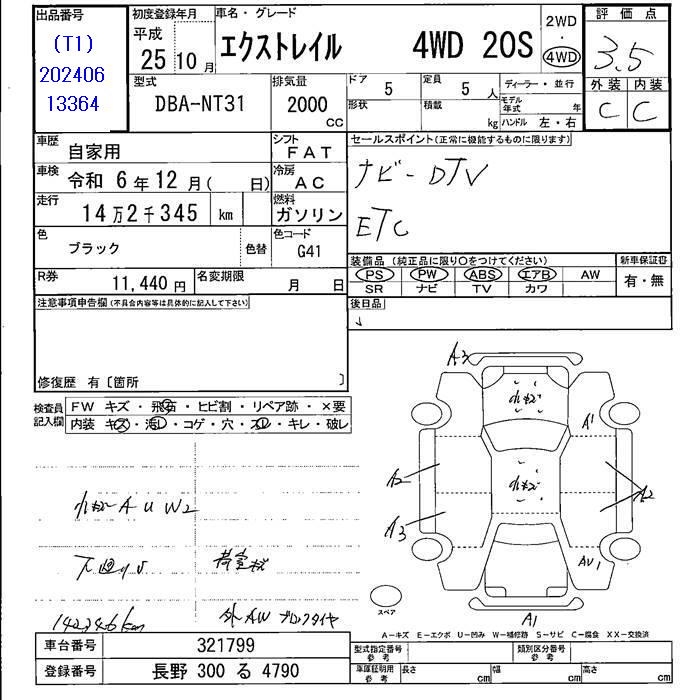 出品番号
(T1)
202406
13364
初度登録年月
平成
25年10月
車名・グレード
エクストレイル 4WD 20S
2WD
・
4WD
評価点
3.5
外装 内装
C C
型式
DBA-NT31
排気量
2000
CC
ドア 5
定員 5 人
形状
積載 kg
ディーラー・並行
モデル年式 年
ハンドル 左・右
車歴 自家用
シフト FAT
車検 令和 6年12月( 日)
冷房 AC
走行 14万2千345 km
燃料 ガソリン
色 ブラック 色替
色コード G41
R券 11,440円
名変期限 月 日
セールスポイント(正常に機能するものに限ります)
ナビ-DTV
ETC
装備品 (純正品に限り○をつけてください)
新車保証書
PS PW ABS エアB AW
SR ナビ TV カワ
有・無
注意事項申告欄(不具合内容等は具体的に記入して下さい)
後日品
修復歴 有〔箇所 〕
検査員記入欄
FW キズ・飛石・ヒビ割・リペア跡・×要
内装 キズ・汚レ・コゲ・穴・スレ・キレ・破レ
小キズ A U W2
下廻りS
荷室桟
142,346km
外AW ブロックタイヤ
A3
小キズ
A1
A2
小キズ
A2
A3
AU1
スペア
A1
A-キズ E-エクボ U-凹み W-補修跡 S-サビ C-腐食 XX-交換済
車台番号 321799
登録番号 長野 300 る 4790
型式指定番号 参考
類別区分番号 参考
車庫証明用 参考
長さ cm
幅 cm
高さ cm